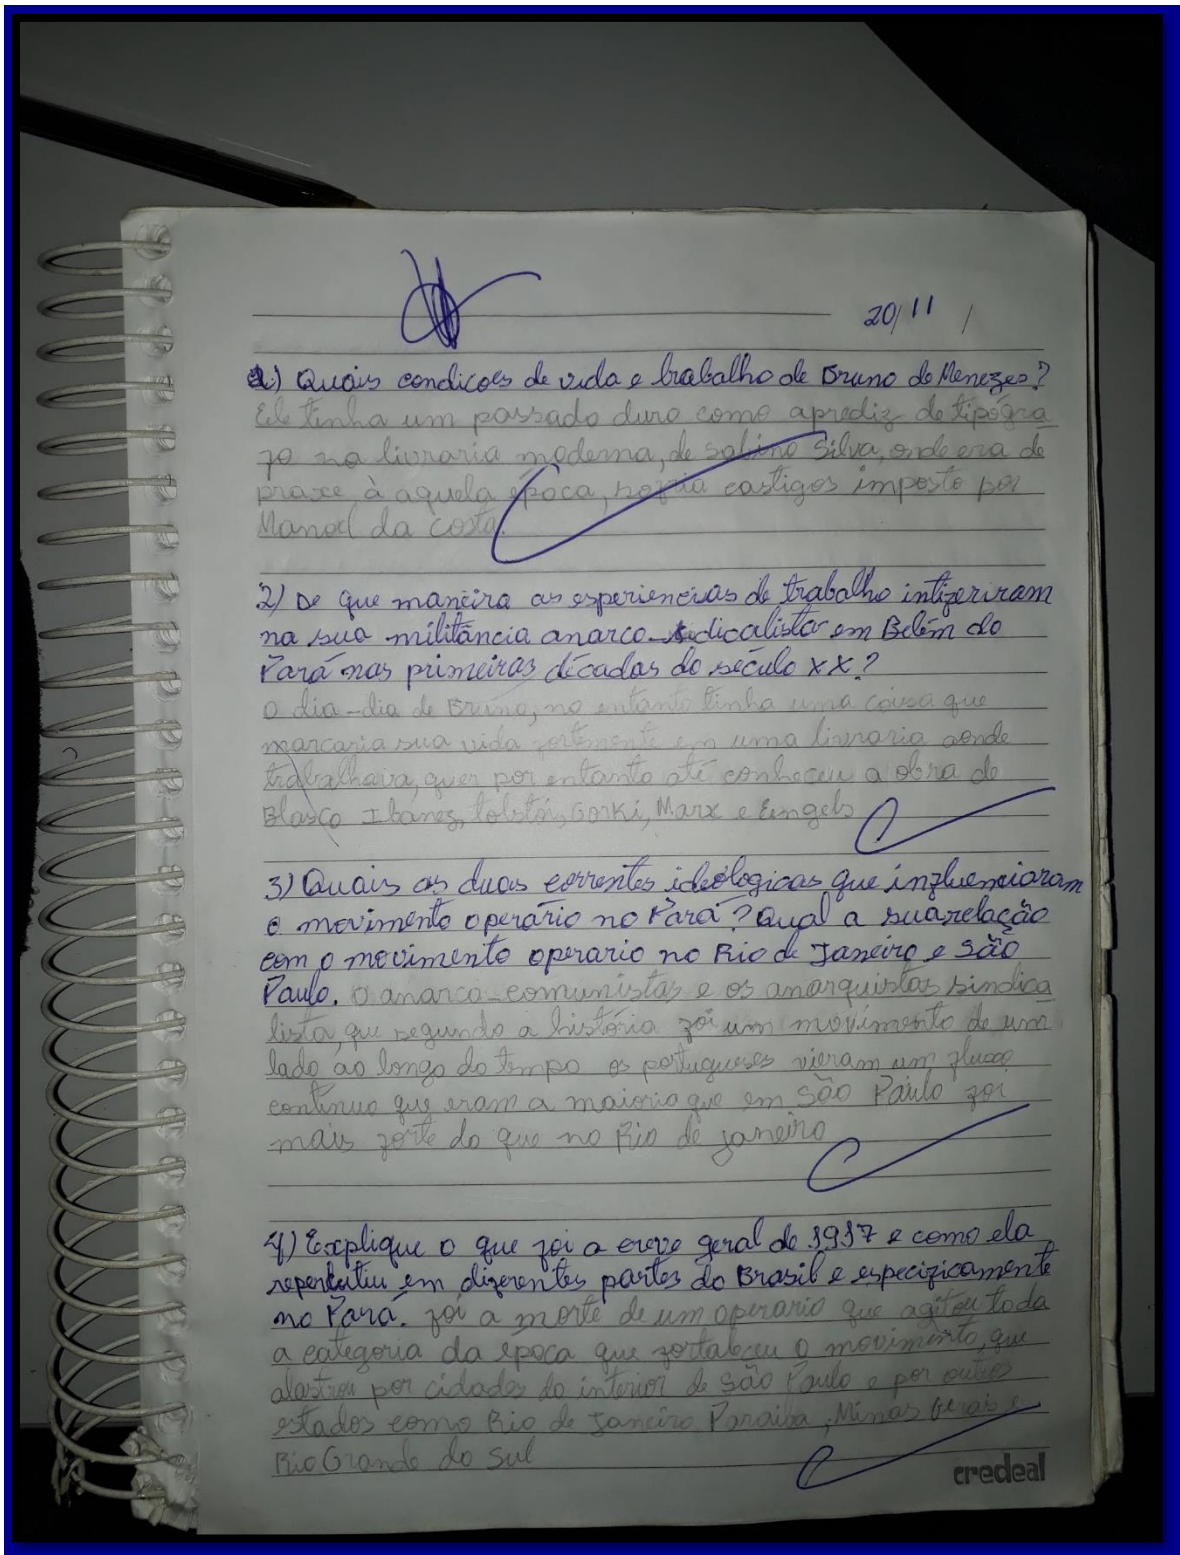 20/11 /
1) Quais condicoes de vida e trabalho de Bruno de Menezes?
Ele tinha um passado duro como aprediz de tipógra
fo na livraria moderna, de sabino Silva, onde era de
praxe, à aquela época, sofria castigos imposto por
Manoel da costa.
2) De que maneira as esperiencias de trabalho intiferiram
na sua militância anarco-sidicalista em Belém do
Pará nas primeiras décadas do século XX?
O dia-dia de Bruno, no entanto tinha uma coisa que
marcaria sua vida fortemente em uma livraria aonde
trabalhava, quer por entanto até conheceu a obra de
Blasco Ibanez, tolstói, Gorki, Marx e Eengels
3) Quais as duas correntes ideólogicas que influenciaram
o movimento operário no Pará? Qual a sua relação
com o movimento operario no Rio de Janeiro e São
Paulo. O anarco-comunistas e os anarquistas sindica
lista, que segundo a história foi um movimento de um
lado ao longo do tempo os portugueses vieram um fluxo
continuo que eram a maioria que em São Paulo foi
mais forte do que no Rio de janeiro
4) Explique o que foi a greve geral de 1917 e como ela
repercutiu em diferentes partes do Brasil e especificamente
no Pará. foi a morte de um operario que agitou toda
a categoria da época que fortaleceu o movimento, que
alastrou por cidades do interior de São Paulo e por outros
estados como Rio de Janeiro Paraiba, Minas Gerais e
Rio Grande do Sul
credeal